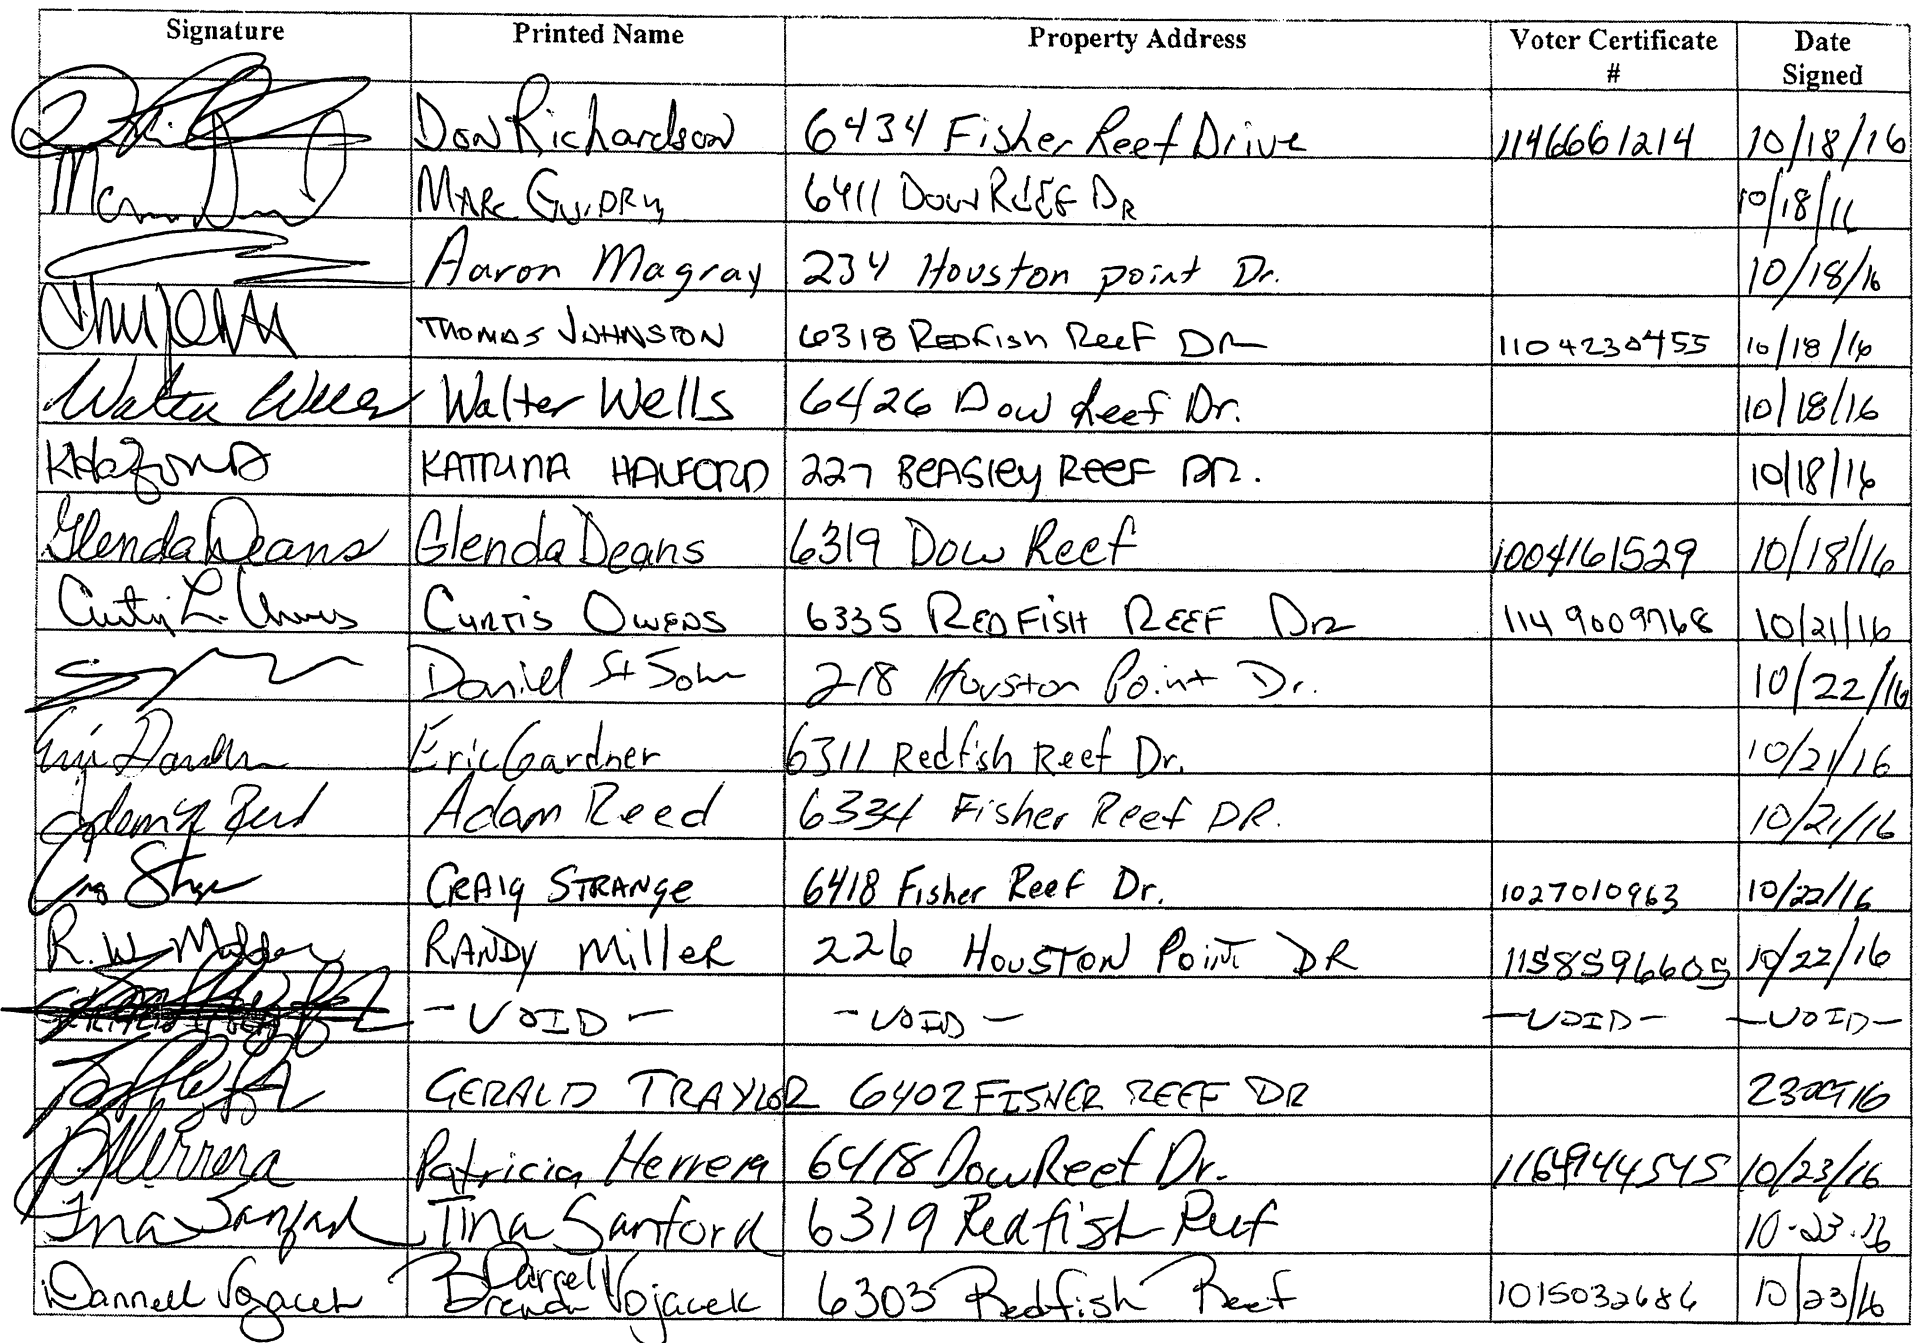 Signature Printed Name Property Address Voter Certificate # Date Signed
Don Richardson 6434 Fisher Reef Drive 1146661214 10/18/16
Marc Guidry 6411 Dow Reef Dr 10/18/16
Aaron Magray 234 Houston point Dr. 10/18/16
Thomas Johnston 6318 Redfish Reef Dr 1104230455 10/18/16
Walter Wells Walter Wells 6426 Dow Reef Dr. 10/18/16
KHalford KATRINA HALFORD 227 BEASLEY REEF DR. 10/18/16
Glenda Deans Glenda Deans 6319 Dow Reef 1004161529 10/18/16
Curtis L. Owens Curtis Owens 6335 REDFISH REEF Dr 1149009768 10/21/16
Daniel St John 218 Houston Point Dr. 10/22/16
Eric Gardner Eric Gardner 6311 Redfish Reef Dr. 10/21/16
Adam Reed Adam Reed 6334 Fisher Reef DR. 10/21/16
Craig Strange CRAIG STRANGE 6418 Fisher Reef Dr. 1027010963 10/22/16
R. W. Miller RANDY Miller 226 HOUSTON POINT DR 1158596605 10/22/16
-VOID- -VOID- -VOID- -VOID-
GERALD TRAYLOR 6402 FISHER REEF DR 23OCT16
PHerrera Patricia Herrera 6418 Dow Reef Dr. 1164944545 10/23/16
Tina Sanford Tina Sanford 6319 Redfish Reef 10-23-16
Darrell Vojacek Darrell Brenda Vojacek 6303 Redfish Reef 1015032686 10/23/16